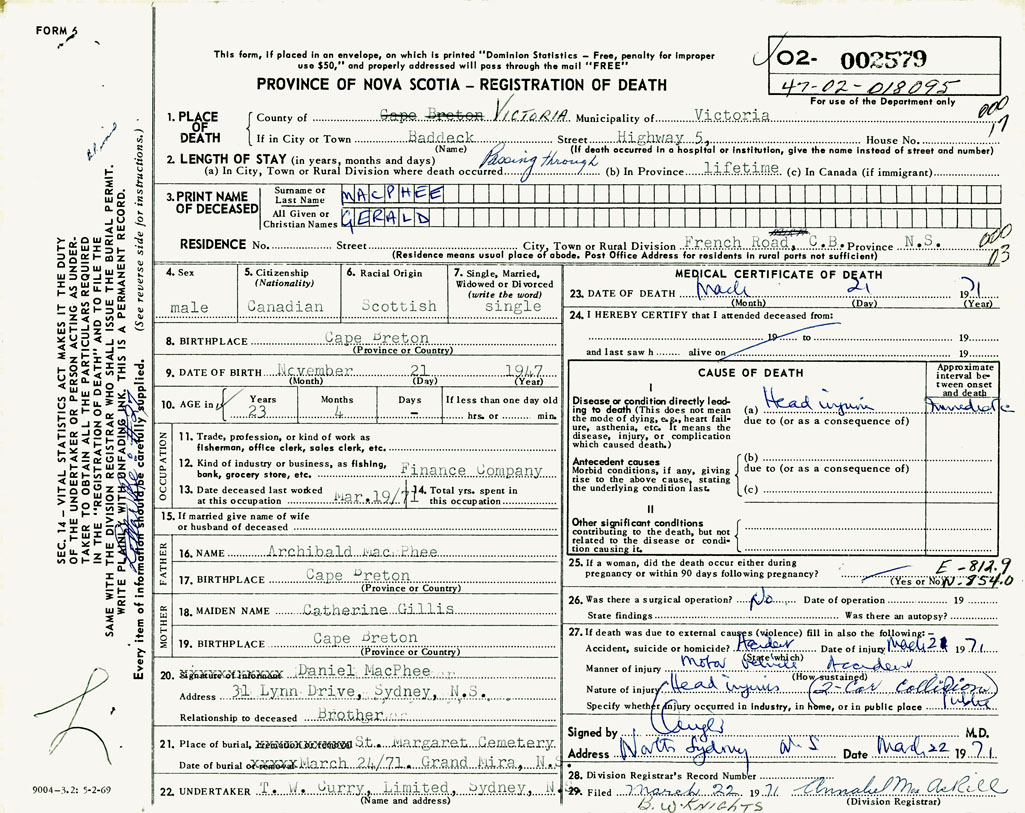 FORM 5
This form, if placed in an envelope, on which is printed "Dominion Statistics – Free, penalty for improper
use $50," and properly addressed will pass through the mail "FREE"
PROVINCE OF NOVA SCOTIA – REGISTRATION OF DEATH
02- 002579
47-02-018095
For use of the Department only
000
17
1. PLACE OF DEATH
County of Cape Breton VICTORIA. Municipality of Victoria
If in City or Town Baddeck Street Highway 5, House No.
(Name) (If death occurred in a hospital or institution, give the name instead of street and number)
2. LENGTH OF STAY (in years, months and days)
(a) In City, Town or Rural Division where death occurred Passing through (b) In Province lifetime (c) In Canada (if immigrant)
3. PRINT NAME OF DECEASED
Surname or Last Name MACPHEE
All Given or Christian Names GERALD
RESIDENCE No. Street City, Town or Rural Division French Road, C.B. Province N.S.
(Residence means usual place of abode. Post Office Address for residents in rural parts not sufficient)
000
03
4. Sex male
5. Citizenship (Nationality) Canadian
6. Racial Origin Scottish
7. Single, Married, Widowed or Divorced (write the word) single
8. BIRTHPLACE Cape Breton
(Province or Country)
9. DATE OF BIRTH November 21 1947
(Month) (Day) (Year)
10. AGE in Years 23 Months 4 Days – If less than one day old hrs. or min.
OCCUPATION
11. Trade, profession, or kind of work as
fisherman, office clerk, sales clerk, etc.
12. Kind of industry or business, as fishing,
bank, grocery store, etc. Finance Company
13. Date deceased last worked
at this occupation Mar.19/71
14. Total yrs. spent in
this occupation
15. If married give name of wife
or husband of deceased
FATHER
16. NAME Archibald MacPhee
17. BIRTHPLACE Cape Breton
(Province or Country)
MOTHER
18. MAIDEN NAME Catherine Gillis
19. BIRTHPLACE Cape Breton
(Province or Country)
20. Signature of informant Daniel MacPhee
Address 31 Lynn Drive, Sydney, N.S.
Relationship to deceased Brother
21. Place of burial, cremation or removal St. Margaret Cemetery
Date of burial or removal March 24/71. Grand Mira, N.S
22. UNDERTAKER T. W. Curry, Limited, Sydney, N.S
(Name and address)
MEDICAL CERTIFICATE OF DEATH
23. DATE OF DEATH March 21 1971
(Month) (Day) (Year)
24. I HEREBY CERTIFY that I attended deceased from:
19 to 19
and last saw h alive on 19
CAUSE OF DEATH
Approximate interval between onset and death
I
Disease or condition directly leading
to death (This does not mean
the mode of dying, e.g., heart failure,
asthenia, etc. It means the
disease, injury, or complication
which caused death.)
(a) Head injuries Immediate
due to (or as a consequence of)
Antecedent causes
Morbid conditions, if any, giving
rise to the above cause, stating
the underlying condition last.
(b)
due to (or as a consequence of)
(c)
II
Other significant conditions
contributing to the death, but not
related to the disease or condition
causing it.
25. If a woman, did the death occur either during
pregnancy or within 90 days following pregnancy?
(Yes or No)
E - 812.9
N - 854.0
26. Was there a surgical operation? No Date of operation 19
State findings Was there an autopsy?
27. If death was due to external causes (violence) fill in also the following:–
Accident, suicide or homicide? Accident Date of injury March 21 1971
(State which)
Manner of injury Motor Vehicle Accident
(How sustained)
Nature of injury Head injuries (2-Car Collision)
Specify whether injury occurred in industry, in home, or in public place Public
Signed by M.D.
Address North Sydney N.S Date March 22 1971.
28. Division Registrar's Record Number
29. Filed March 22 1971 Annabel MacAskill
(Division Registrar)
B. W KNIGHTS
9004-3.2: 5-2-69
SEC. 14 – VITAL STATISTICS ACT MAKES IT THE DUTY
OF THE UNDERTAKER OR PERSON ACTING AS UNDERTAKER
TO OBTAIN ALL THE PARTICULARS REQUIRED
IN THE "REGISTRATION OF DEATH" AND TO FILE THE
SAME WITH THE DIVISION REGISTRAR WHO SHALL ISSUE THE BURIAL PERMIT.
WRITE PLAINLY WITH UNFADING INK. THIS IS A PERMANENT RECORD.
Every item of information should be carefully supplied. (See reverse side for instructions.)